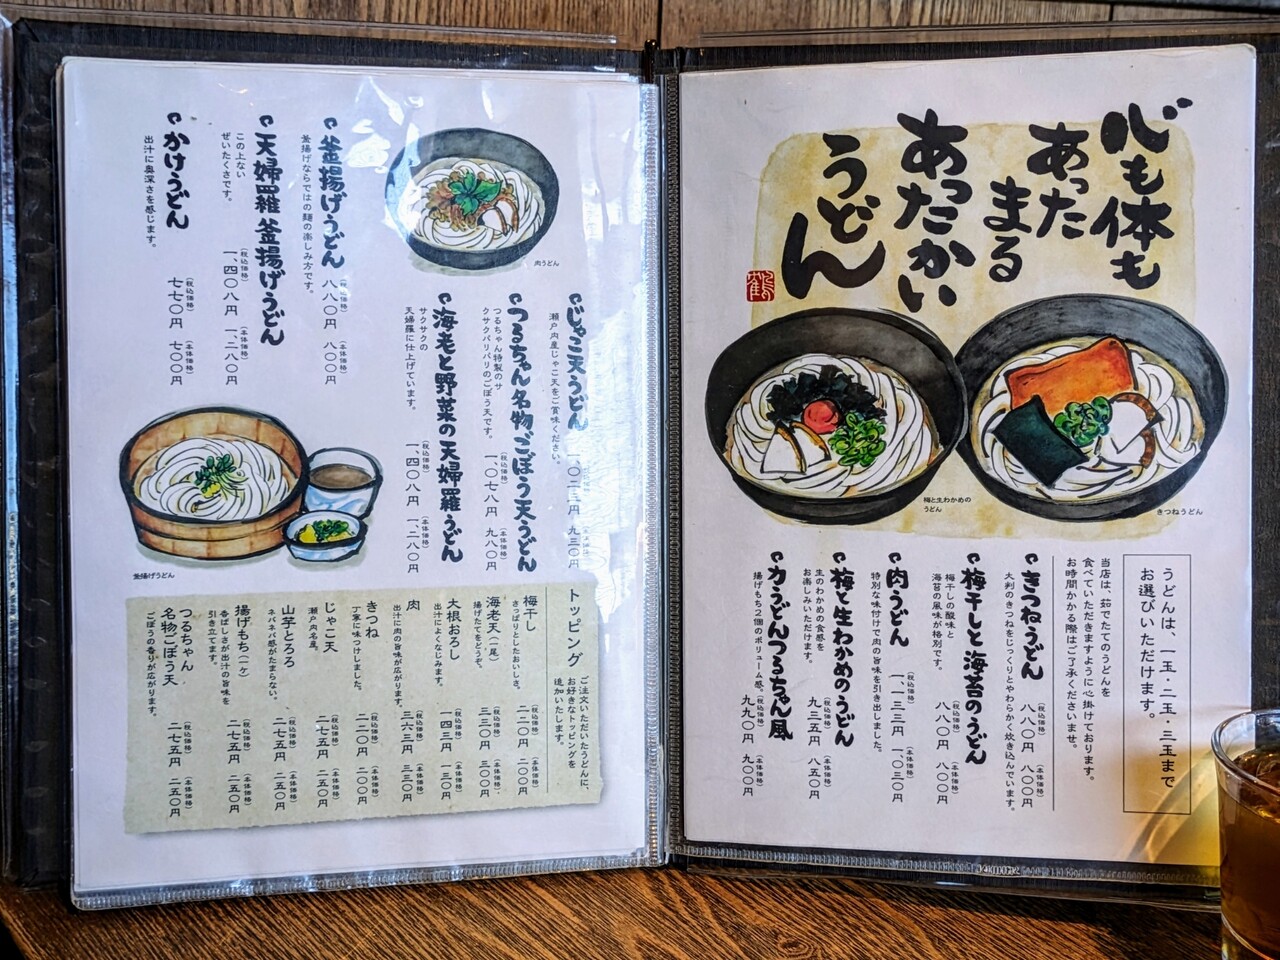 心も体も
あった
まる
あったかい
うどん
鶴
梅と生わかめの
うどん
きつねうどん
うどんは、一玉・二玉・三玉まで
お選びいただけます。
当店は、茹でたてのうどんを
食べていただきますように心掛けております。
お時間かかる際はご了承くださいませ。
きつねうどん
大判のきつねをじっくりとやわらかく炊き込んでいます。
(税込価格)
八八〇円
(本体価格)
八〇〇円
梅干しと海苔のうどん
梅干しの酸味と
海苔の風味が格別です。
(税込価格)
八八〇円
(本体価格)
八〇〇円
肉うどん
特別な味付けで肉の旨味を引き出しました。
(税込価格)
一、一三三円
(本体価格)
一、〇三〇円
梅と生わかめのうどん
生のわかめの食感を
お楽しみいただけます。
(税込価格)
九三五円
(本体価格)
八五〇円
力うどんつるちゃん風
揚げもち2個のボリューム感。
(税込価格)
九九〇円
(本体価格)
九〇〇円
肉うどん
じゃこ天うどん
瀬戸内産じゃこ天をご賞味ください。
一、〇二三円
九三〇円
つるちゃん名物ごぼう天うどん
つるちゃん特製のサ
クサクパリパリのごぼう天です。
(税込価格)
一、〇七八円
(本体価格)
九八〇円
海老と野菜の天婦羅うどん
サクサクの
天婦羅に仕上げています。
(税込価格)
一、四〇八円
(本体価格)
一、二八〇円
釜揚げうどん
釜揚げならではの麺の楽しみ方です。
(税込価格)
八八〇円
(本体価格)
八〇〇円
天婦羅釜揚げうどん
この上ない
ぜいたくさです。
(税込価格)
一、四〇八円
(本体価格)
一、二八〇円
かけうどん
出汁に奥深さを感じます。
(税込価格)
七七〇円
(本体価格)
七〇〇円
釜揚げうどん
トッピング
ご注文いただいたうどんに、
お好きなトッピングを
追加いたします。
梅干し
さっぱりとしたおいしさ。
(税込価格)
二二〇円
(本体価格)
二〇〇円
海老天(一尾)
揚げたてをどうぞ。
(税込価格)
三三〇円
(本体価格)
三〇〇円
大根おろし
出汁によくなじみます。
(税込価格)
一四三円
(本体価格)
一三〇円
肉
出汁に肉の旨味が広がります。
(税込価格)
三六三円
(本体価格)
三三〇円
きつね
丁寧に味つけしました。
(税込価格)
二二〇円
(本体価格)
二〇〇円
じゃこ天
瀬戸内名産。
(税込価格)
二七五円
(本体価格)
二五〇円
山芋とろろ
ネバネバ感がたまらない。
(税込価格)
二七五円
(本体価格)
二五〇円
揚げもち(一ケ)
香ばしさが出汁の旨味を
引き立てます。
(税込価格)
二七五円
(本体価格)
二五〇円
つるちゃん
名物ごぼう天
ごぼうの香りが広がります。
(税込価格)
二七五円
(本体価格)
二五〇円